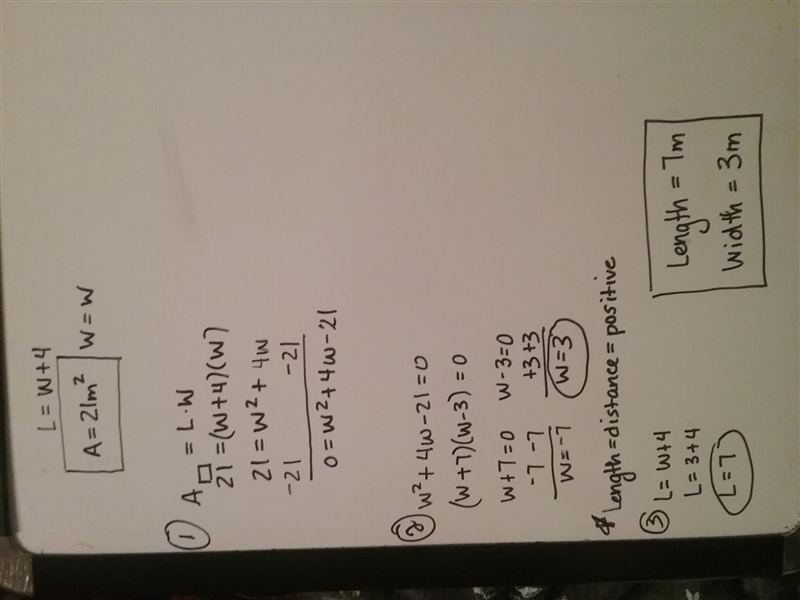 L = W+4
A = 21m² W = W
① A□ = L·W
21 = (W+4)(W)
21 = W² + 4W
-21 -21
0 = W² + 4W - 21
② W² + 4W - 21 = 0
(W+7)(W-3) = 0
W+7=0 W-3=0
-7 -7 +3 +3
W=-7 W=3
* Length = distance = positive
③ L = W+4
L = 3+4
L = 7
Length = 7m
Width = 3m